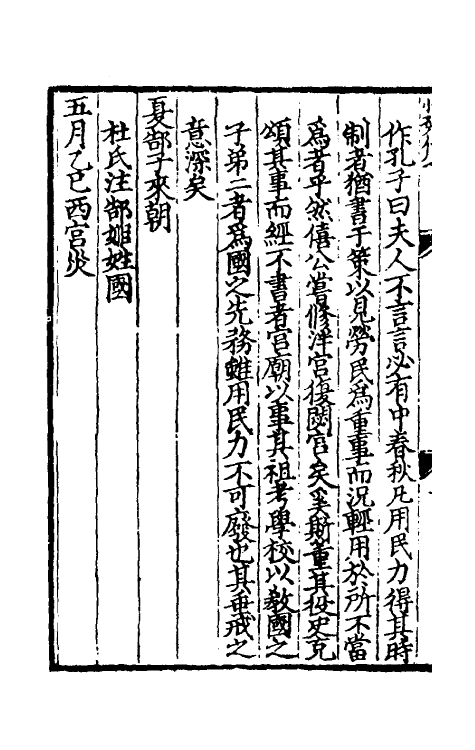 作孔子曰夫人不言言必有中春秋凡用民力得其時
制者猶書于策以見勞民爲重事而況輕用於所不當
爲者乎然僖公嘗修泮宮復閟宮矣奚斯董其役史克
頌其事而經不書者宮廟以事其祖考學校以教國之
子弟二者爲國之先務雖用民力不可廢也其垂戒之
意深矣
夏郜子來朝
杜氏注郜姬姓國
五月乙巳西宮災